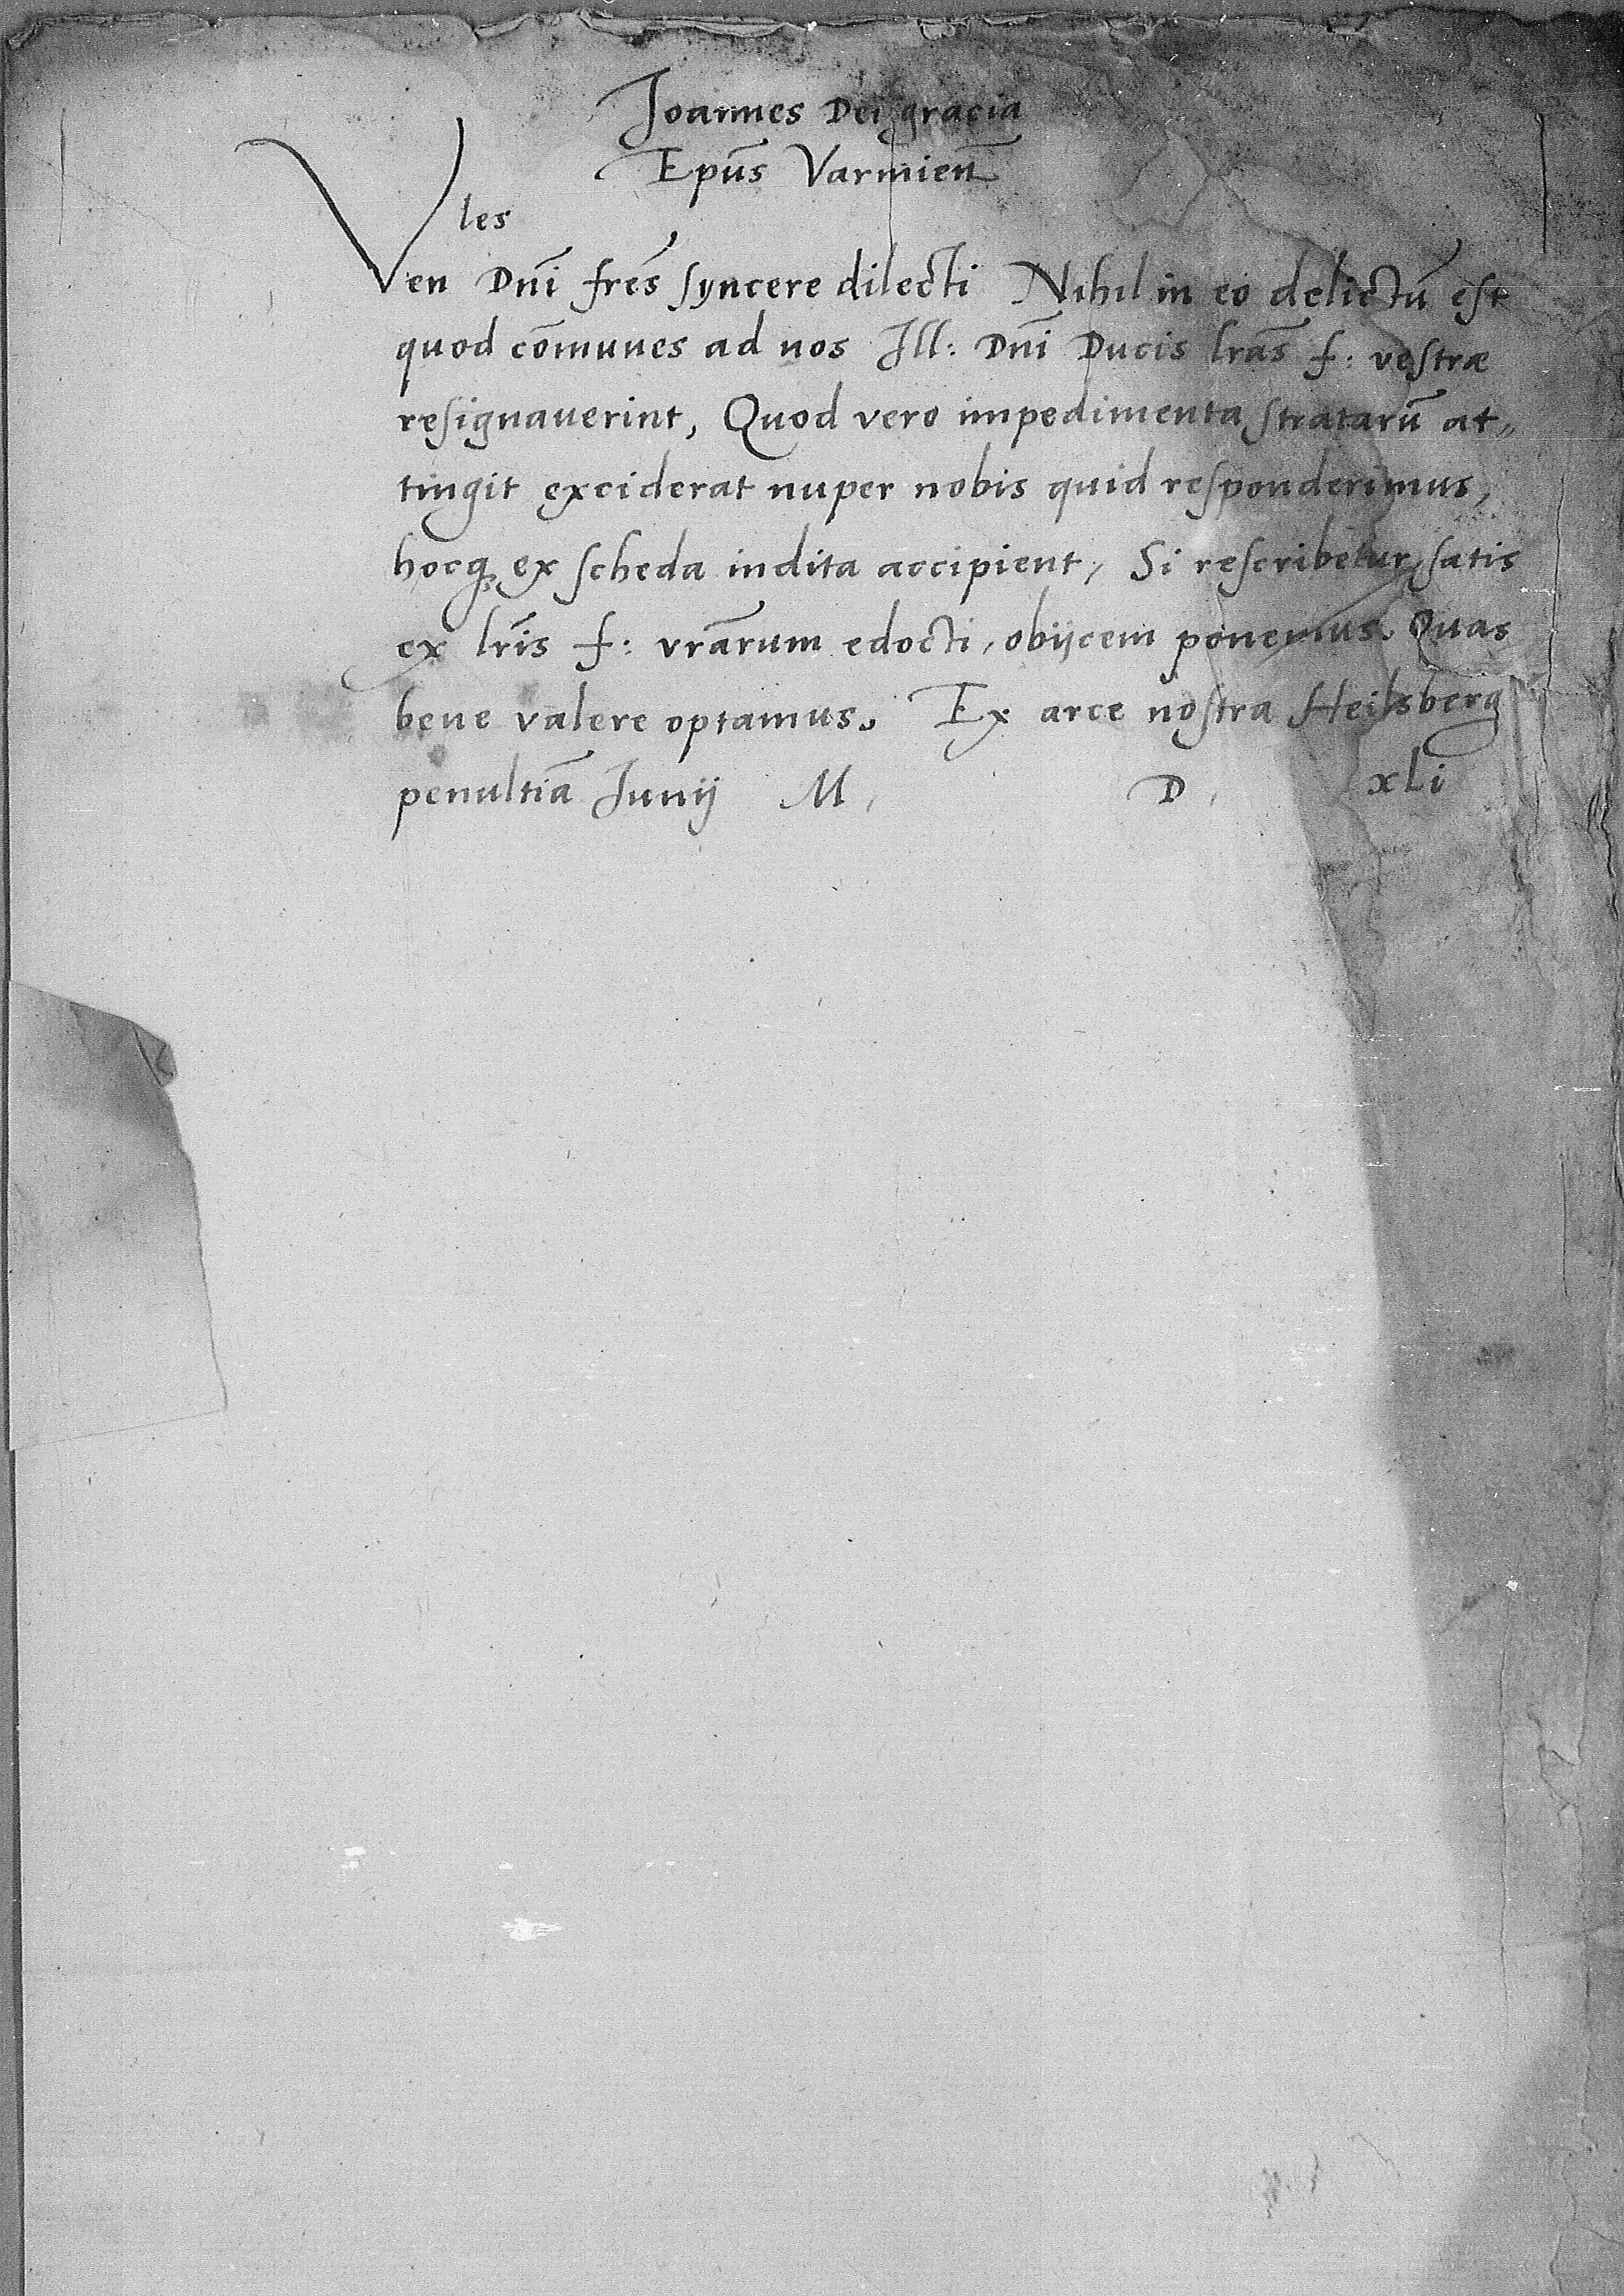 Joannes Dei gracia
Epūs Varmien̄
les
Ven Dn̄i frēs syncere dilecti Nihil in eo delictū est
quod cōmunes ad nos Ill: Dn̄i Ducis lrās f: vestræ
resignauerint, Quod vero impedimenta stratarū at,,
tingit exciderat nuper nobis quid responderimus,
hocq̨ ex scheda indita accipient, Si rescribetur, satis
ex lrīs f: vrārum edocti, obijcem ponemus. Quas
bene valere optamus. Ex arce nostra Heilsberg
penultiā Junij M, D, xLi